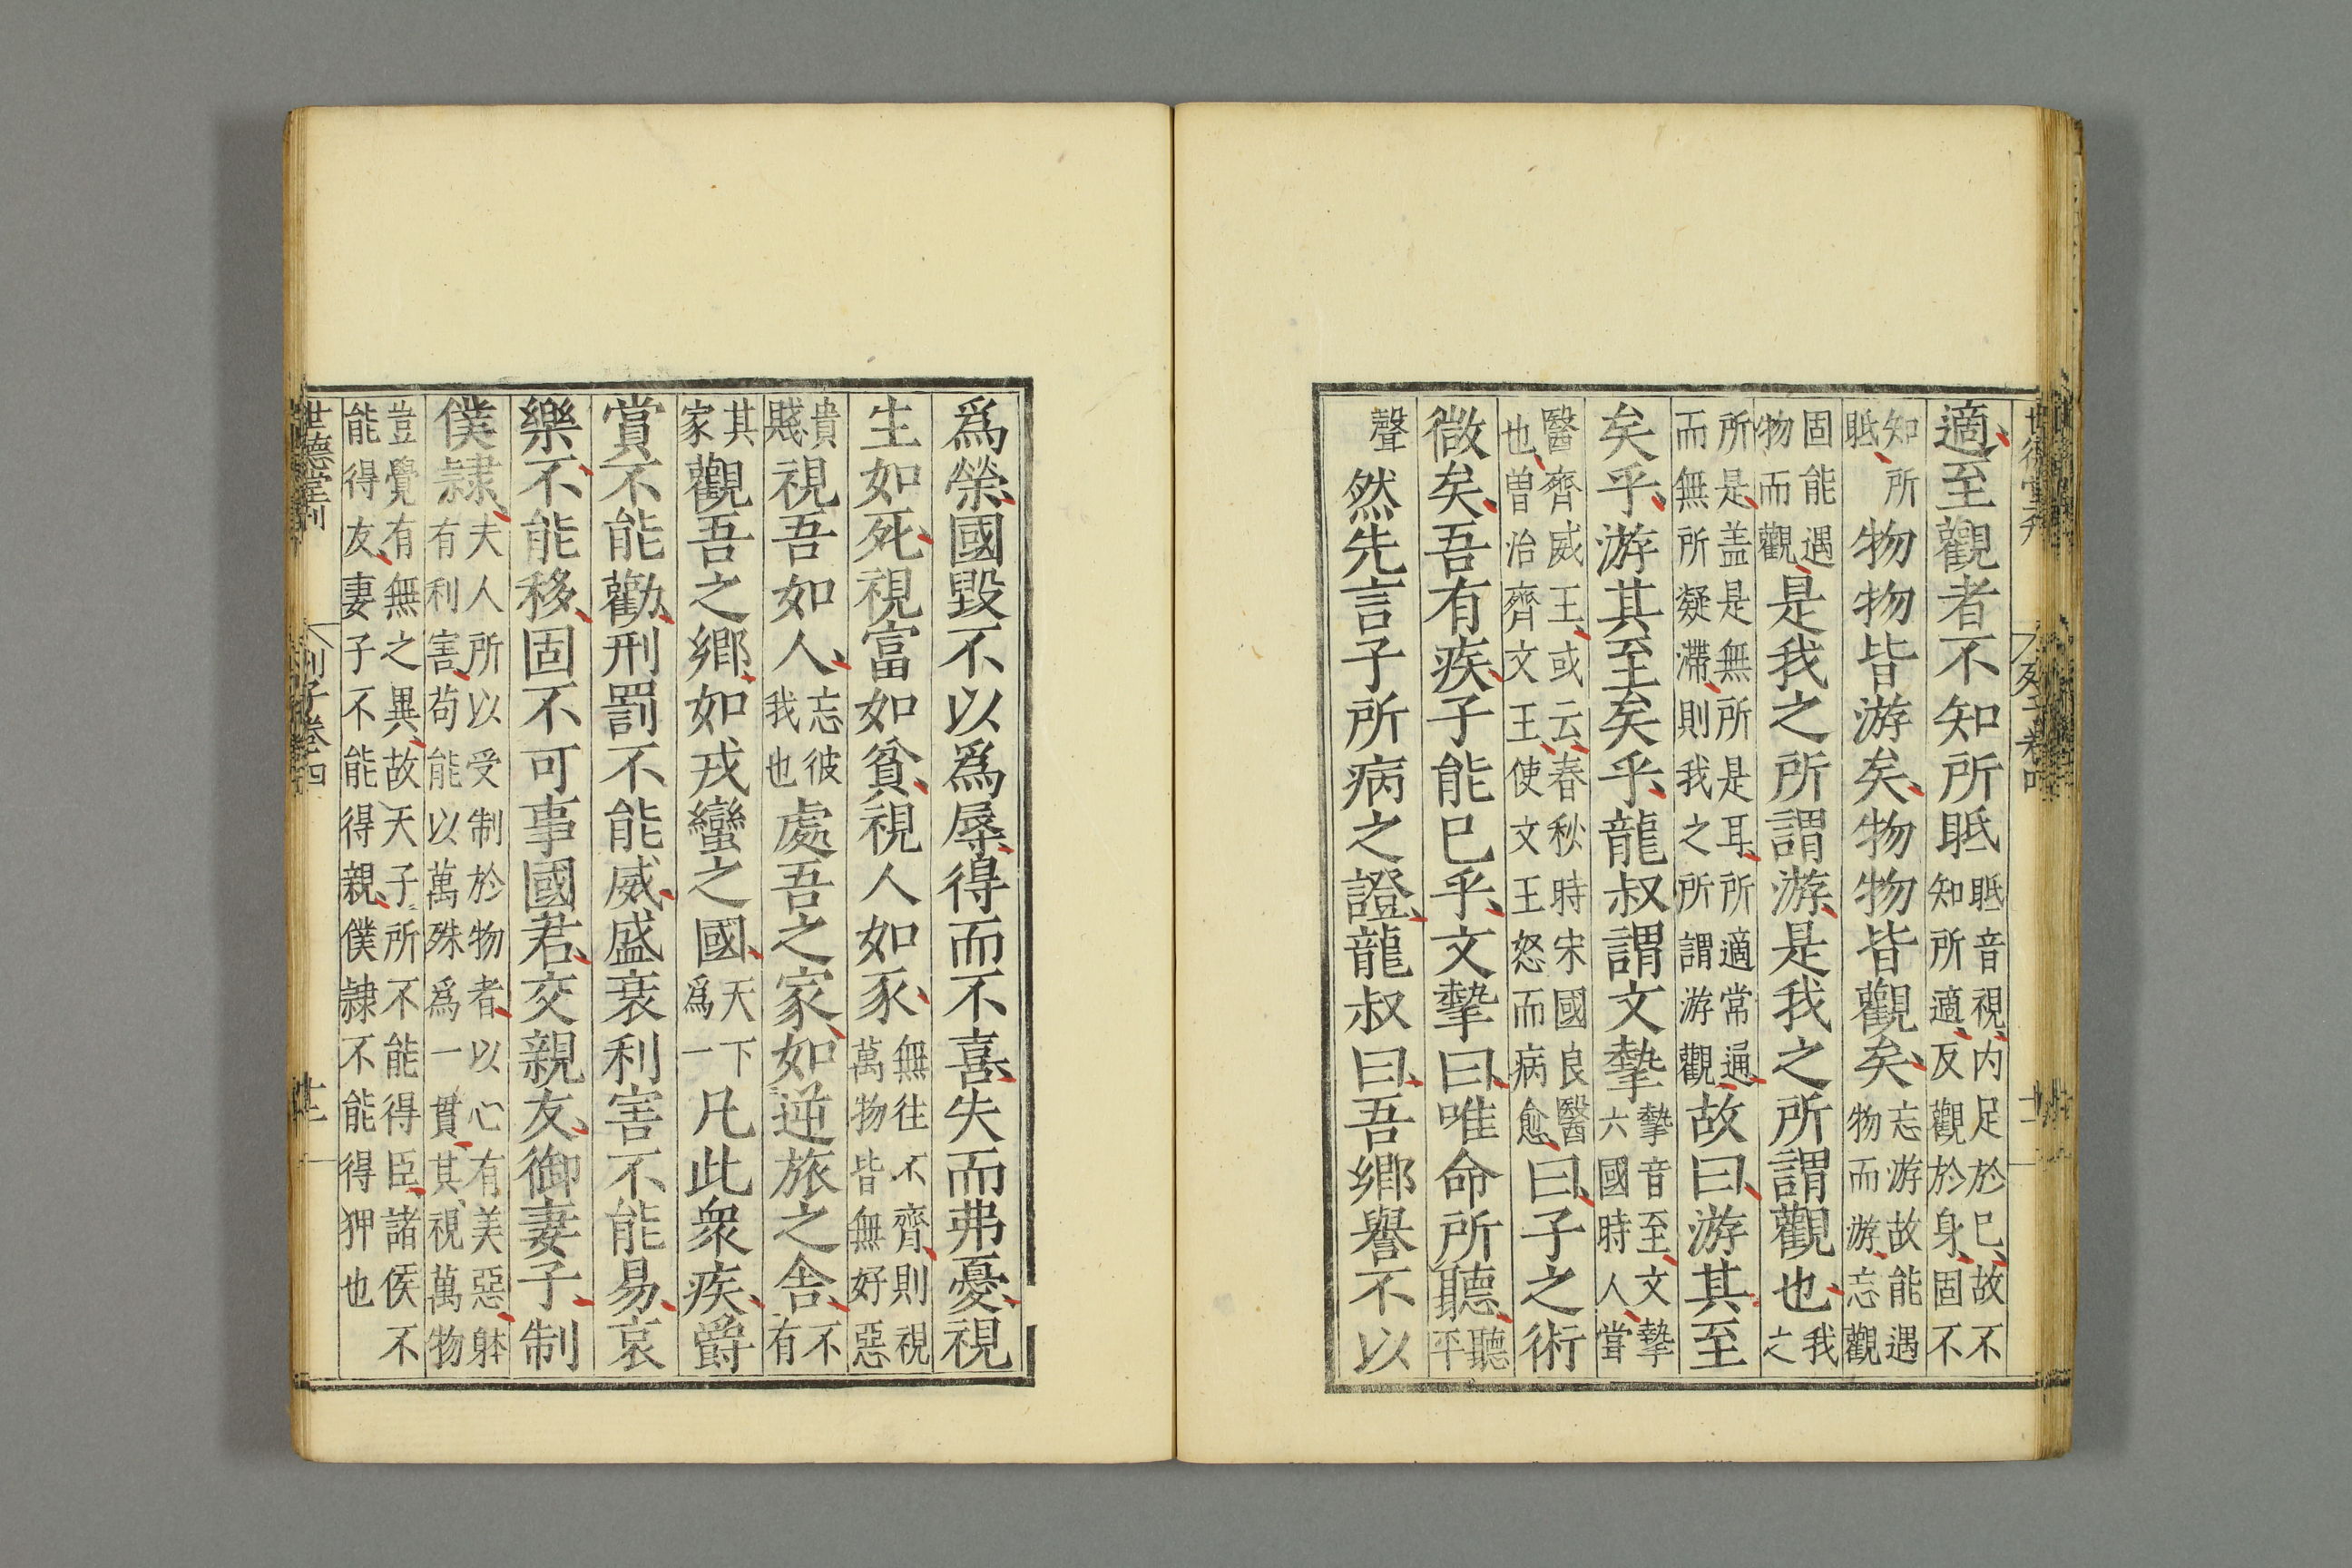 世德堂刊 列子卷四 十二
適至觀者不知所眂眂音視内足於巳故不知所適反觀於身固不
知所眂物物皆游矣物物皆觀矣忘游故能遇物而游忘觀
固能遇物而觀是我之所謂游是我之所謂觀也我之
所是盖是無所是耳所適常通而無所凝滯則我之所謂游觀故曰游其至
矣乎游其至矣乎龍叔謂文摯摯音至文摯六國時人甞
醫齊威王或云春秋時宋國良醫也曽治齊文王使文王怒而病愈曰子之術
微矣吾有疾子能巳乎文摯曰唯命所聽聽平
聲然先言子所病之證龍叔曰吾鄉譽不以
爲榮國毀不以爲辱得而不喜失而弗憂視
生如死視富如貧視人如豕無往不齊則視萬物皆無好惡
貴賤視吾如人忘彼我也處吾之家如逆旅之舎不有
其家觀吾之鄉如戎蠻之國天下爲一凡此衆疾爵
賞不能勸刑罰不能威盛衰利害不能易哀
樂不能移固不可事國君交親友御妻子制
僕隸夫人所以受制於物者以心有美惡躰有利害苟能以萬殊爲一貫其視萬物
豈覺有無之異故天子所不能得臣諸侯不能得友妻子不能得親僕隸不能得狎也
世德堂刊 列子卷四 十二